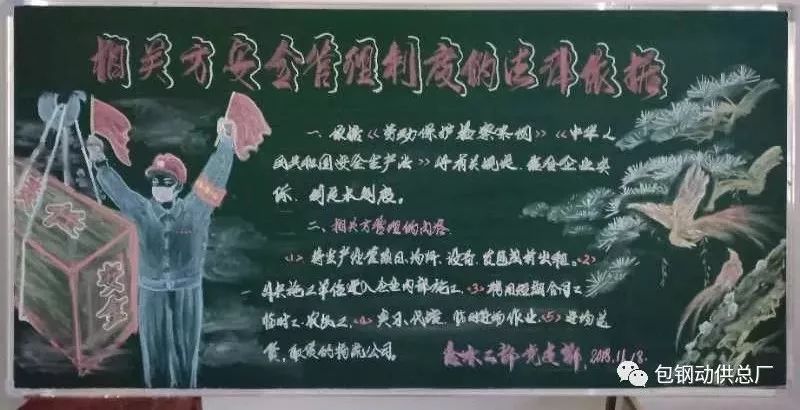 相关方安全管理制度的法律依据
一、依据《劳动保护检察条例》《中华人
民共和国安全生产法》等有关规定，结合企业实
际，制定本制度。
二、相关方管理的内容
<1>、将生产经营项目、场所、设备、发包或出租。<2>
具体施工单位进入企业内部施工、<3>聘用短期合同工
临时工、农民工、<4>实习、代培、临时进场作业、<5>进场送
货、取货的物流公司。
2018.11.13.
安全
包钢动供总厂